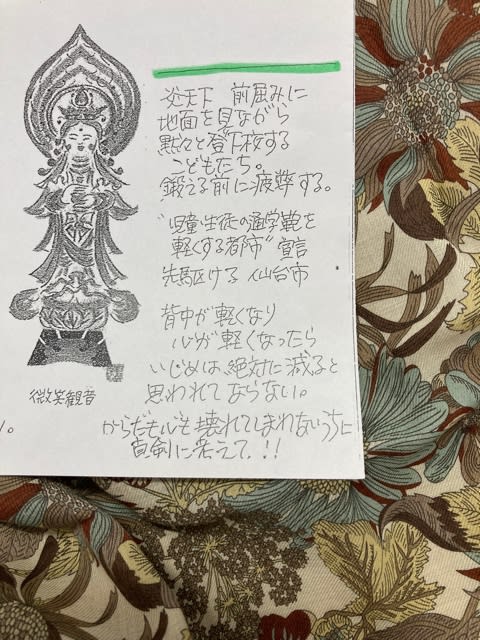 炎天下 前屈みに
地面を見ながら
黙々と登下校する
こどもたち。
鍛える前に疲弊する。
"児童・生徒の通学鞄を
軽くする都市"宣言
先駆ける 仙台市
背中が軽くなり
心が軽くなったら
いじめは、絶対に減ると
思われてならない。
からだも心も壊れてしまわないうちに
真剣に考えて!!
微笑観音